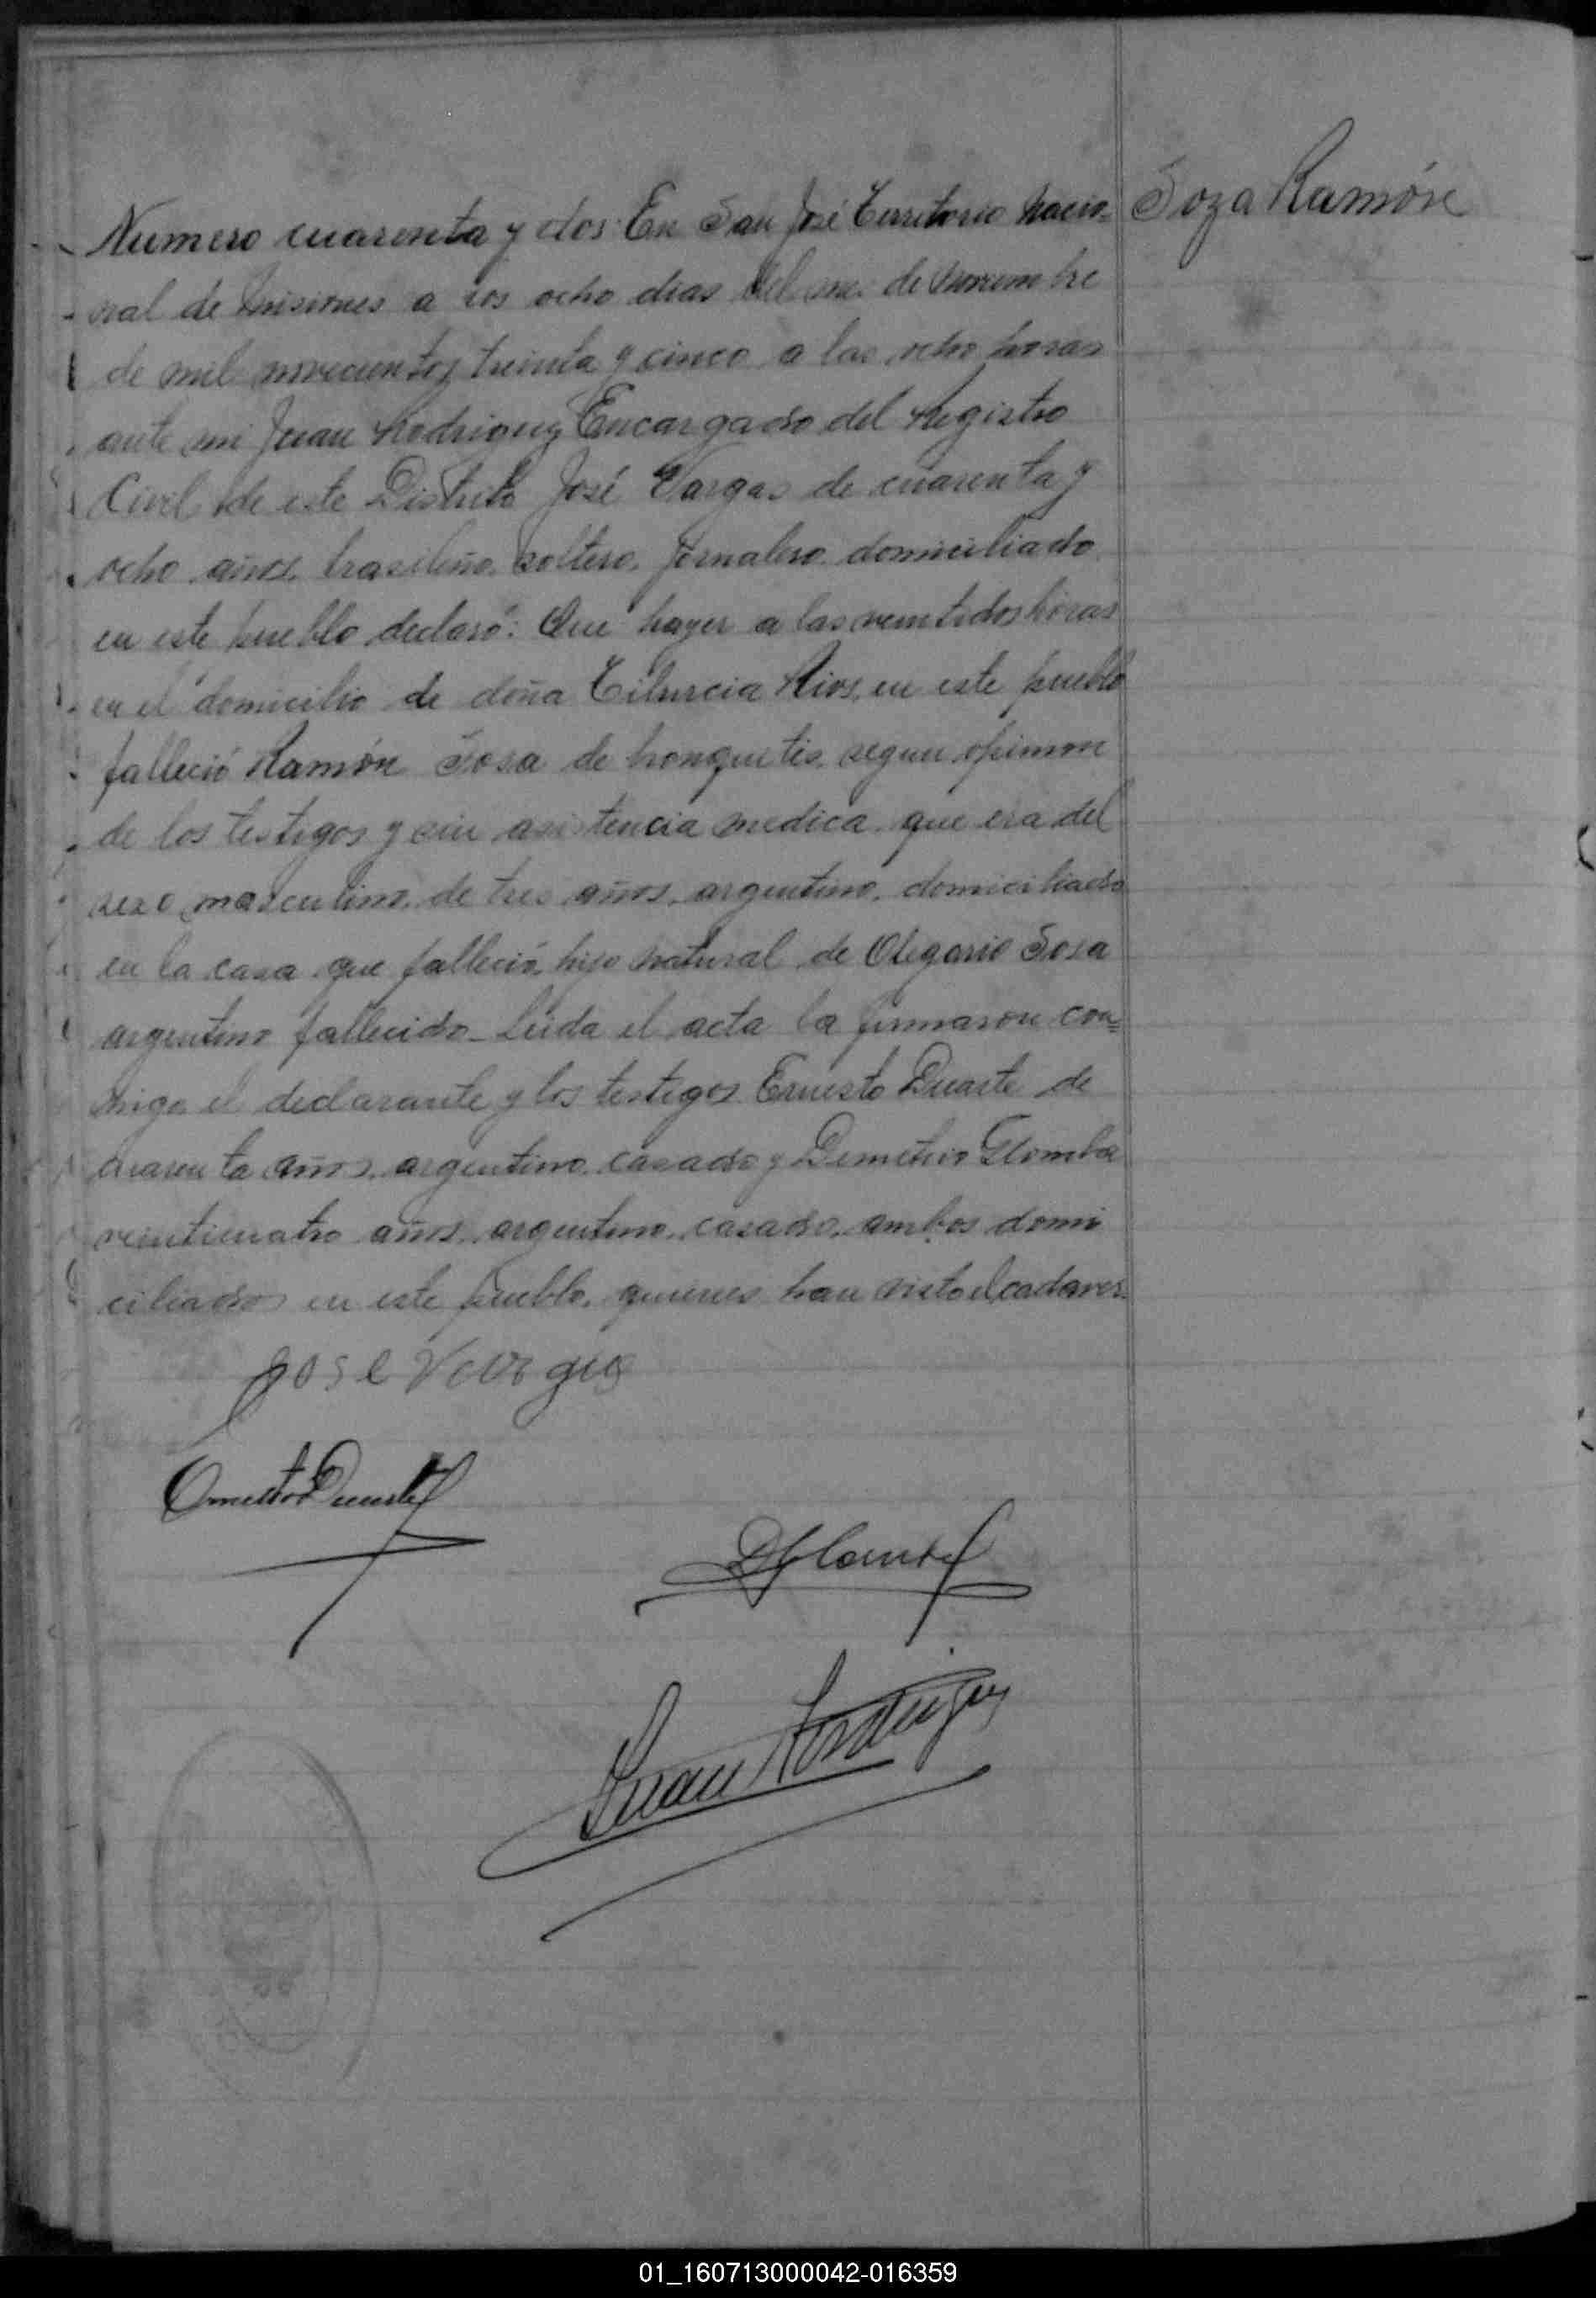 Soza Ramón
Numero cuarenta y dos. En San José Territorio Nacio=
nal de Misiones a los ocho dias del mes de Noviembre
de mil novecientos treinta y cinco a las ocho horas
ante mi Juan Rodriguez Encargado del Registro
Civil de este Distrito José Vargas de cuarenta y
ocho años, brasileño, soltero, jornalero domiciliado
en este pueblo declaró: Que hayer a las veintidos horas
en el domicilio de doña Tiburcia Rios, en este pueblo
falleció Ramón Sosa de bronquitis, segun opinion
de los testigos y sin asistencia medica, que era del
sexo masculino, de tres años, argentino, domiciliado
en la casa que falleció, hijo natural de Olegario Sosa
argentino fallecido_ Leida el acta la firmaron con=
migo el declarante y los testigos Ernesto Duarte de
cuarenta años, argentino, casado y Demetrio Glomba
veinticuatro años, argentino, casado, ambos domi
ciliados en este pueblo, quienes han visto el cadaver.
José Vargas
Ernesto Duarte
DGlomba
Juan Rodriguez
01_160713000042-016359